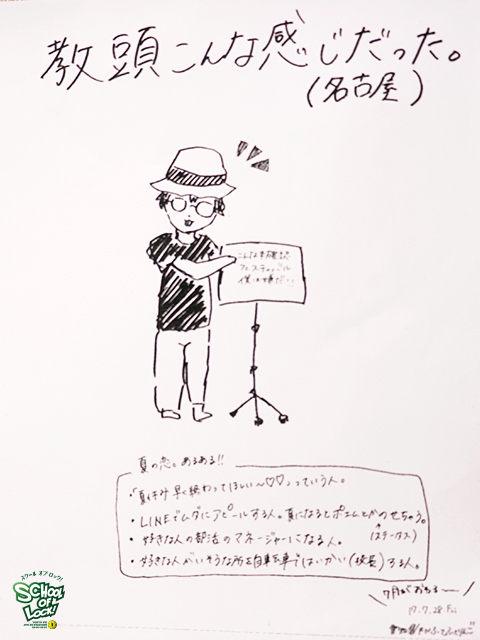 教頭こんな感じだった。
(名古屋)
こんな未確認
フェスティバル
僕は嫌だ!!
夏の恋。あるある!!
・「夏休み早く終わってほしい〜♡♡」っていう人。
・LINEでムダにアピールする人。夏になるとポエムとかのせちゃう。
(はテータス)
・好きな人の部活のマネージャーになる人。
・好きな人がいそうな所を自転車ではいかい(徘徊)する人。
7月がおちる〜
17.7.28 Fri
スクール オブ ロック!
SCHOOL OF LOCK!